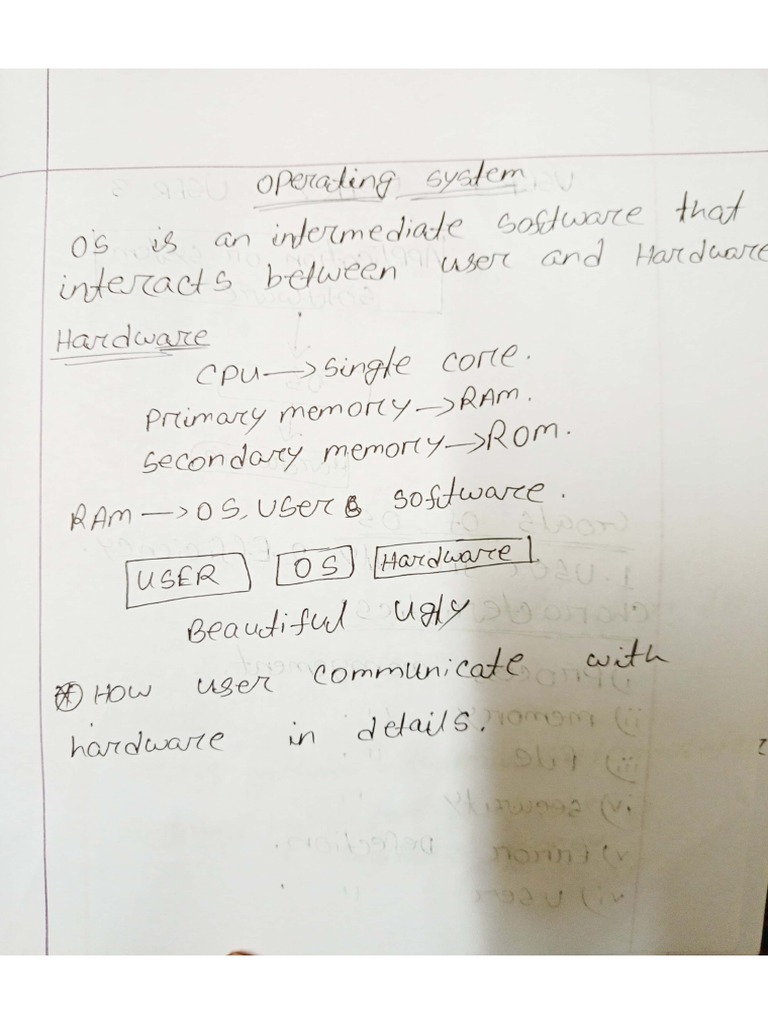 Operating system
O's is an intermediate software that
interacts between user and Hardware
Hardware
CPU → Single core.
Primary memory → RAM.
Secondary memory → ROM.
RAM → OS, User & software.
USER OS Hardware
Beautiful Ugly
* How user communicate with
hardware in details.